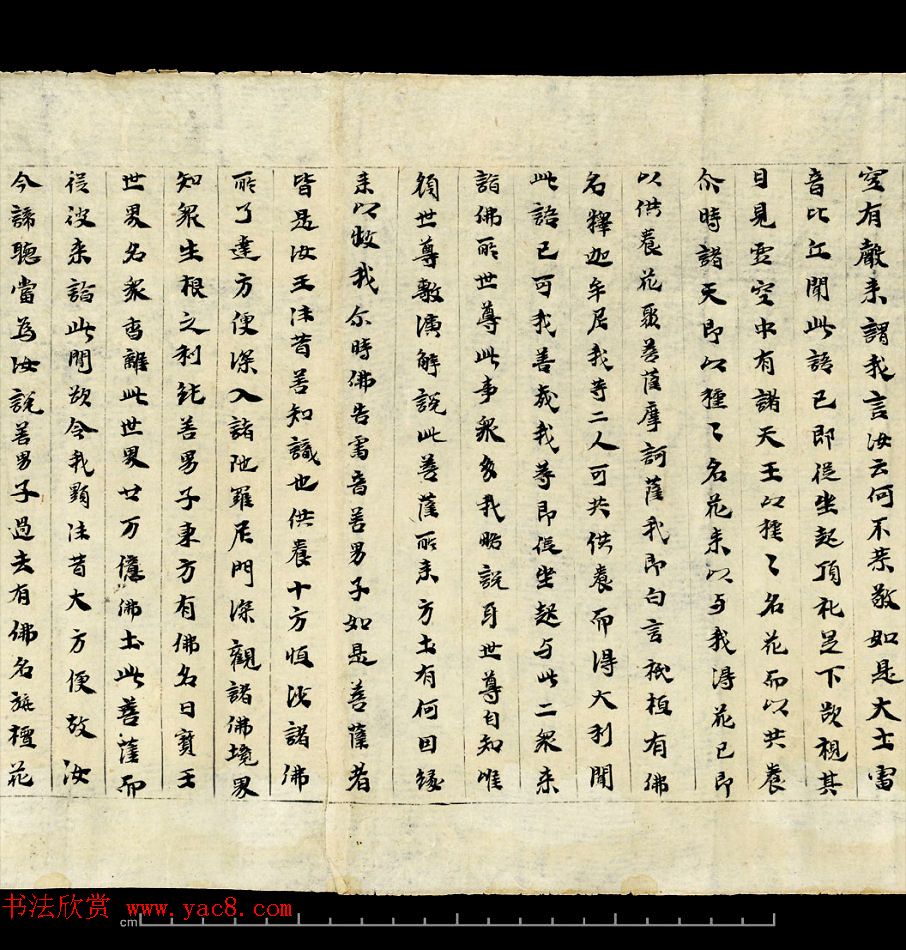 空有聲来謂我言汝云何不恭敬如是大士雷
音比丘聞此語已即從坐起頂礼足下欲視其
目見雲空中有諸天王以種々名花而以共養
尒時諸天即以種々名花来以与我得花已即
以供養花聚菩薩摩訶薩我即白言祇桓有佛
名釋迦牟尼我等二人可共供養而得大利聞
此語已可我善哉我等即從坐起与此二衆来
詣佛所世尊此事衆多我略說耳世尊自知唯
願世尊敷演解說此菩薩所来方土有何因緣
来以救我尒時佛告雷音善男子如是菩薩者
皆是汝王法昔善知識也供養十方恒沙諸佛
所了達方便深入諸陁羅尼門深觀諸佛境界
知衆生根之利鈍善男子東方有佛名曰寶王
世界名衆香離此世界廿万億佛土此菩薩而
從彼来詣此聞欲令我顯法昔大方便故汝
今諦聽當為汝說善男子過去有佛名旃檀花
书法欣赏 www.yac8.com
cm